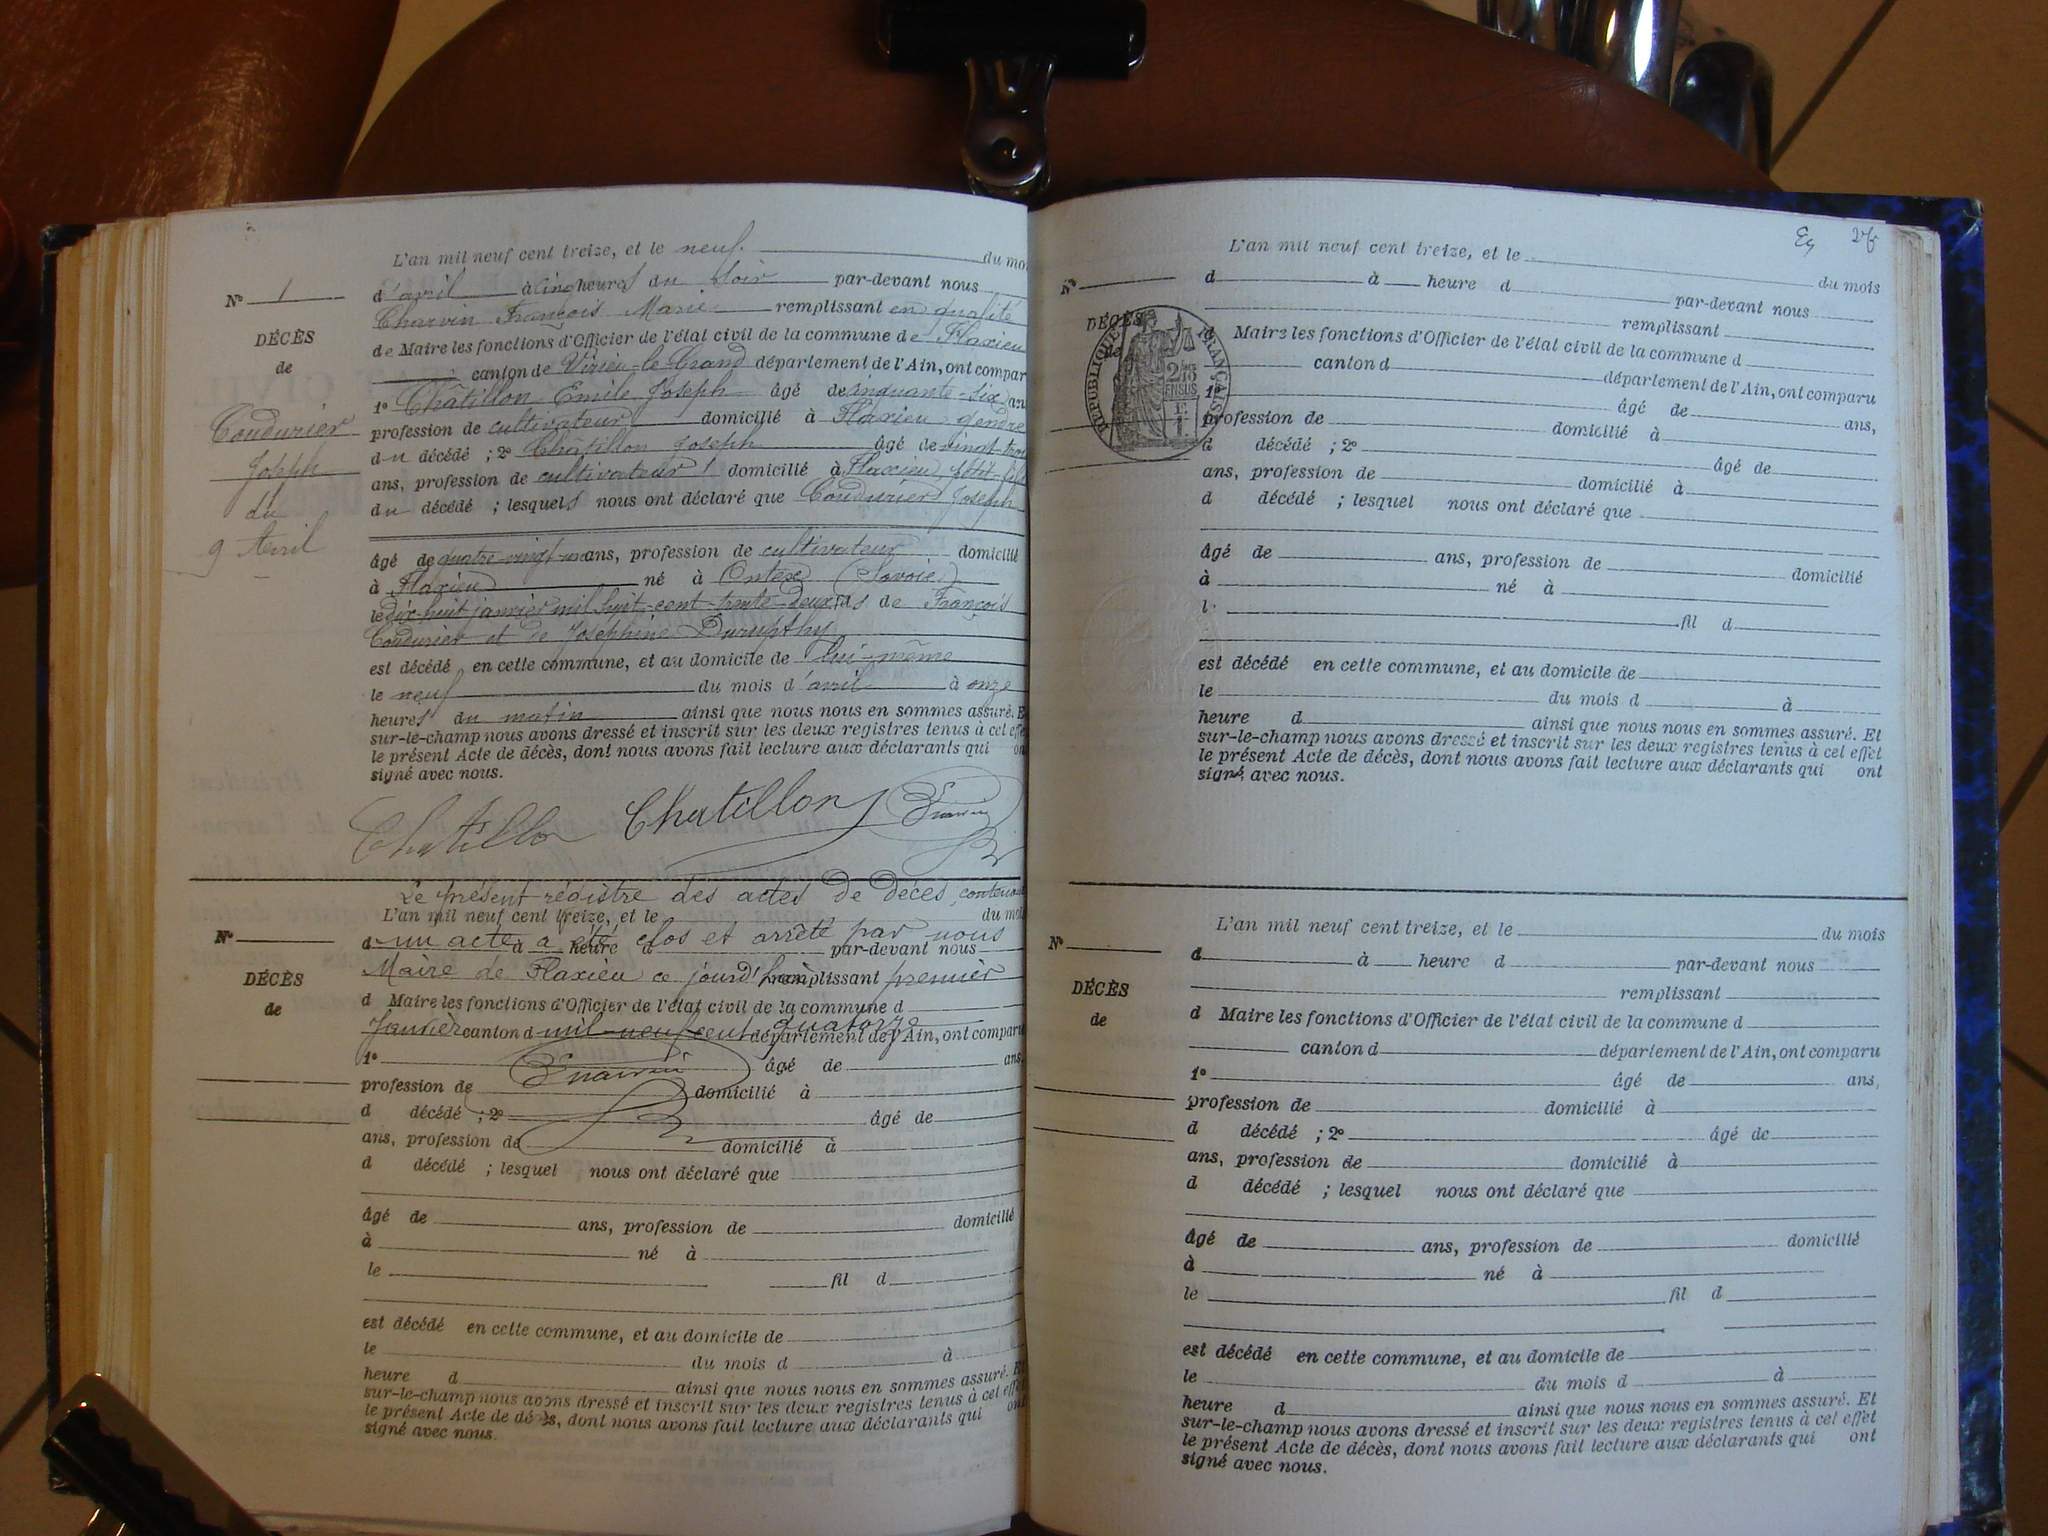 L'an mil neuf cent treize, et le neuf du moi
N° 1
d'avril à cinq heures du soir par-devant nous
Charvin François Marie remplissant en qualité
DÉCÈS
de Maire les fonctions d'Officier de l'état civil de la commune de Flaxieu
de
canton de Virieu-le-Grand département de l'Ain, ont compar
1° Châtillon Emile Joseph âgé de cinquante-six an
Coudurier
profession de cultivateur domicilié à Flaxieu gendre
du décédé ; 2° Châtillon Joseph âgé de vingt-trois
Joseph
ans, profession de cultivateur domicilié à Flaxieu petit-fils
du décédé ; lesquels nous ont déclaré que Coudurier Joseph
du
9 Avril
âgé de quatre-vingt-un ans, profession de cultivateur domicilié
à Flaxieu né à Ontex (Savoie)
le dix-huit janvier mil huit-cent-trente-deux fils de François
Coudurier et de Josephine Durupthy
est décédé en cette commune, et au domicile de lui-même
le neuf du mois d'avril à onze
heures du matin ainsi que nous nous en sommes assuré. E
sur-le-champ nous avons dressé et inscrit sur les deux registres tenus à cet effe
le présent Acte de décès, dont nous avons fait lecture aux déclarants qui on
signé avec nous.
Chatillon Chatillon
Le présent régistre des actes de décès contenant
L'an mil neuf cent treize, et le du moi
N°
un acte a été clos et arrêté par nous
d à heure d par-devant nous
Maire de Flaxieu ce jourd'hui premier
remplissant
DÉCÈS
d Maire les fonctions d'Officier de l'état civil de la commune d
de
Janvier mil-neuf cent quatorze
canton d département de l'Ain, ont comparu
1° âgé de ans,
profession de domicilié à
d décédé ; 2° âgé de
ans, profession de domicilié à
d décédé ; lesquel nous ont déclaré que
âgé de ans, profession de domicilié
à né à
le fil d
est décédé en cette commune, et au domicile de
le du mois d à
heure d ainsi que nous nous en sommes assuré. E
sur-le-champ nous avons dressé et inscrit sur les deux registres tenus à cet effe
le présent Acte de décès, dont nous avons fait lecture aux déclarants qui ont
signé avec nous.
L'an mil neuf cent treize, et le du mois
N°
d à heure d par-devant nous
remplissant
DÉCÈS
d Maire les fonctions d'Officier de l'état civil de la commune d
de
canton d département de l'Ain, ont comparu
RÉPUBLIQUE FRANÇAISE
1° âgé de ans,
profession de domicilié à
d décédé ; 2° âgé de
ans, profession de domicilié à
d décédé ; lesquel nous ont déclaré que
âgé de ans, profession de domicilié
à né à
l
fil d
est décédé en cette commune, et au domicile de
le du mois d à
heure d ainsi que nous nous en sommes assuré. Et
sur-le-champ nous avons dressé et inscrit sur les deux registres tenus à cet effet
le présent Acte de décès, dont nous avons fait lecture aux déclarants qui ont
signé avec nous.
L'an mil neuf cent treize, et le du mois
N°
d à heure d par-devant nous
remplissant
DÉCÈS
d Maire les fonctions d'Officier de l'état civil de la commune d
de
canton d département de l'Ain, ont comparu
1° âgé de ans,
profession de domicilié à
d décédé ; 2° âgé de
ans, profession de domicilié à
d décédé ; lesquel nous ont déclaré que
âgé de ans, profession de domicilié
à né à
le fil d
est décédé en cette commune, et au domicile de
le du mois d à
heure d ainsi que nous nous en sommes assuré. Et
sur-le-champ nous avons dressé et inscrit sur les deux registres tenus à cet effet
le présent Acte de décès, dont nous avons fait lecture aux déclarants qui ont
signé avec nous.